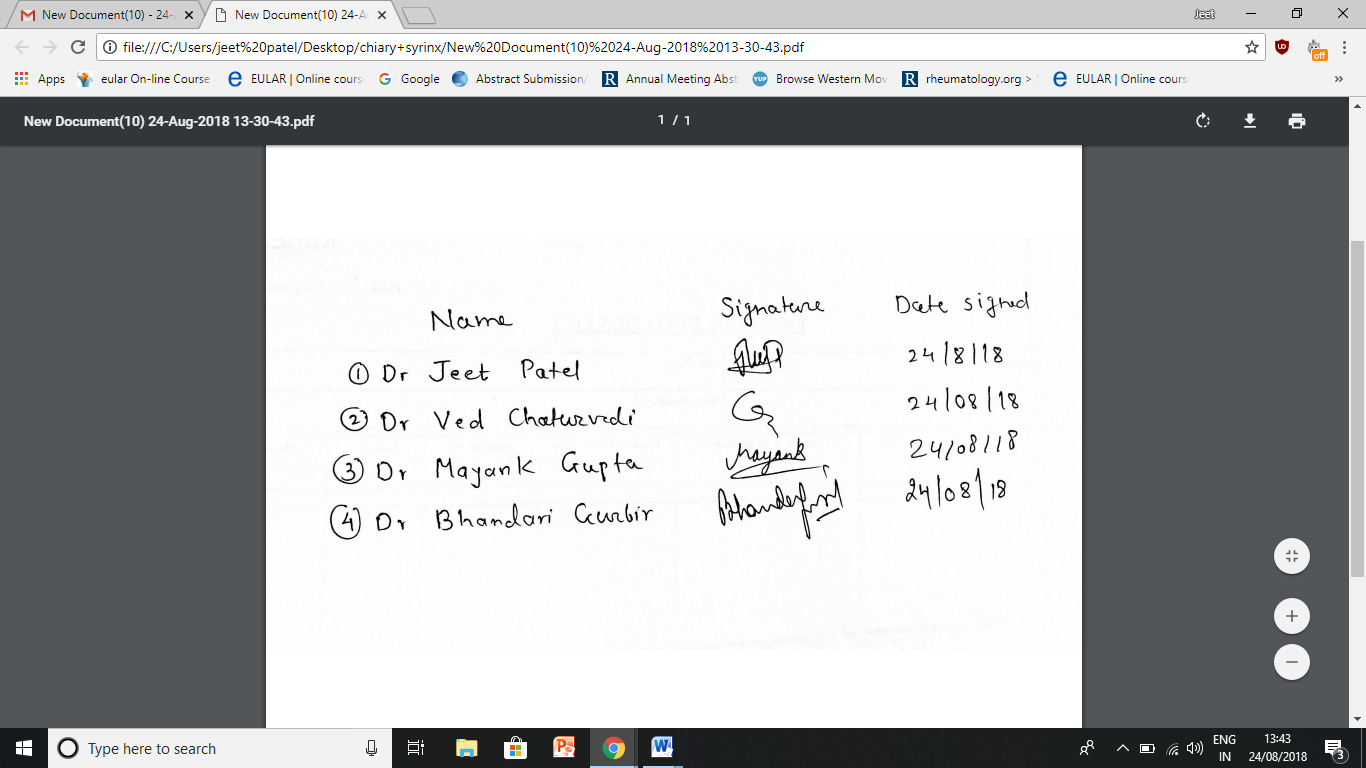 New Document(10) - 24-
New Document(10) 24-A
Jeet
file:///C:/Users/jeet%20patel/Desktop/chiary+syrinx/New%20Document(10)%2024-Aug-2018%2013-30-43.pdf
off
Apps eular On-line Course EULAR | Online cours Google Abstract Submission/ Annual Meeting Abst YUP Browse Western Mov rheumatology.org > EULAR | Online cours »
New Document(10) 24-Aug-2018 13-30-43.pdf 1 / 1
Name Signature Date signed
① Dr Jeet Patel 24/8/18
② Dr Ved Chaturvedi 24/08/18
③ Dr Mayank Gupta Mayank 24/08/18
④ Dr Bhandari Gurbir 24/08/18
Type here to search
ENG 13:43
IN 24/08/2018 3